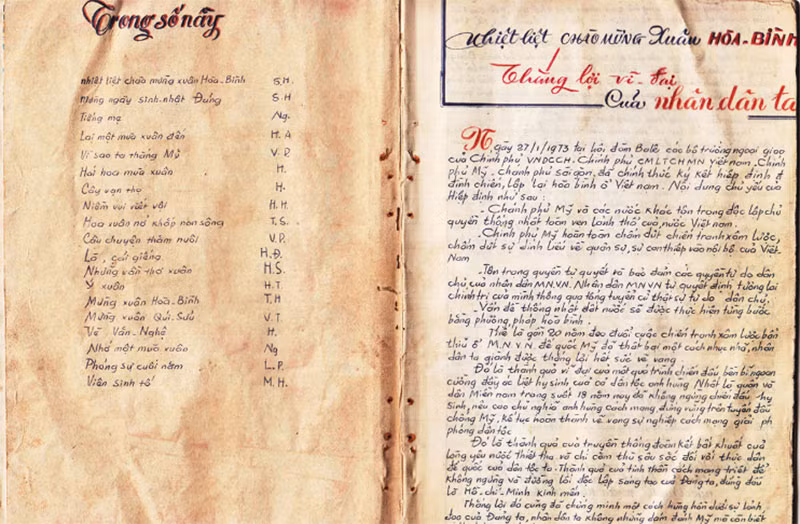 Trong số này
nhiệt liệt chào mừng xuân Hòa-Bình S.H.
Mừng ngày sinh nhật Đảng S.H
Tiếng mẹ Ng.
Lại một mùa xuân đến H.A
Vì sao ta thắng Mỹ V.P.
Hai hoa mùa xuân H.
Cây vạn thọ H.
Niềm vui viết vội H.H.
Hoa xuân nở khắp non sông T.S.
Câu chuyện thăm nuôi V.P.
Lá, cái giếng H.Đ.
Những vần thơ xuân H.S.
Ý xuân H.T.
Mừng xuân Hòa-Bình T.H
Mừng xuân Quí-Sửu V.T.
Về Văn-Nghệ H.
Nhớ một mùa xuân Ng
Phóng sự cuối năm L.P.
Viên sinh tố M.H.
Nhiệt liệt CHÀO MỪNG Xuân HÒA-BÌNH
Thắng lợi vĩ-đại
Của nhân dân ta
Ngày 27/1/1973 tại hội đàm Balê các bộ trưởng ngoại giao
của Chính phủ VNDCCH. Chính phủ CMLTCHMN Việt nam. Chính
phủ Mỹ. Chánh phủ Sài gòn, đã chính thức ký kết hiệp định
đình chiến, lập lại hòa bình ở Việt nam. Nội dung chủ yếu của
Hiệp định như sau:
Chánh phủ Mỹ và các nước khác tôn trọng độc lập chủ
quyền thống nhất toàn vẹn lãnh thổ của nước Việt nam.
Chính phủ Mỹ hoàn toàn chấm dứt chiến tranh xâm lược,
chấm dứt sự dính líu về quân sự, sự can thiệp vào nội bộ của Việt-
Nam
Tôn trọng quyền tự quyết và bảo đảm các quyền tự do dân
chủ của nhân dân MN.VN. Nhân dân MNVN tự quyết định tương lai
chính trị của mình thông qua tổng tuyển cử thật sự tự do dân chủ.
Vấn đề thống nhất đất nước sẽ được thực hiện từng bước
bằng phương pháp hòa bình.
Thế là gần 20 năm đeo đuổi cuộc chiến tranh xâm lược bẩn
thỉu ở M.N.V.N. đế quốc Mỹ đã thất bại một cách nhục nhã, nhân
dân ta giành được thắng lợi hết sức vẻ vang.
Đó là thành quả vĩ đại của một quá trình chiến đấu bền bỉ ngoan
cường đầy ác liệt hy sinh của cả dân tộc anh hùng. Nhất là quân và
dân Miền nam trong suốt 18 năm nay đã không ngừng chiến đấu hy
sinh, nêu cao chủ nghĩa anh hùng cách mạng, đứng vững trên tuyến đầu
chống Mỹ, kế tục hoàn thành vẻ vang sự nghiệp cách mạng giải ph
phóng dân tộc
Đó là thành quả của truyền thống đoàn kết bất khuất của
lòng yêu nước thiết tha và chí căm thù sâu sắc đối với thực dân
đế quốc của dân tộc ta. Thành quả của tinh thần cách mạng triệt để
không ngừng và đường lối độc lập sáng tạo của Đảng ta, đứng đầu
là Hồ-Chí-Minh kính mến.
Thắng lợi đó cũng đã chứng minh một cách hùng hồn dưới sự lãnh
đạo của Đảng ta, nhân dân ta không những dám đánh Mỹ mà còn biết